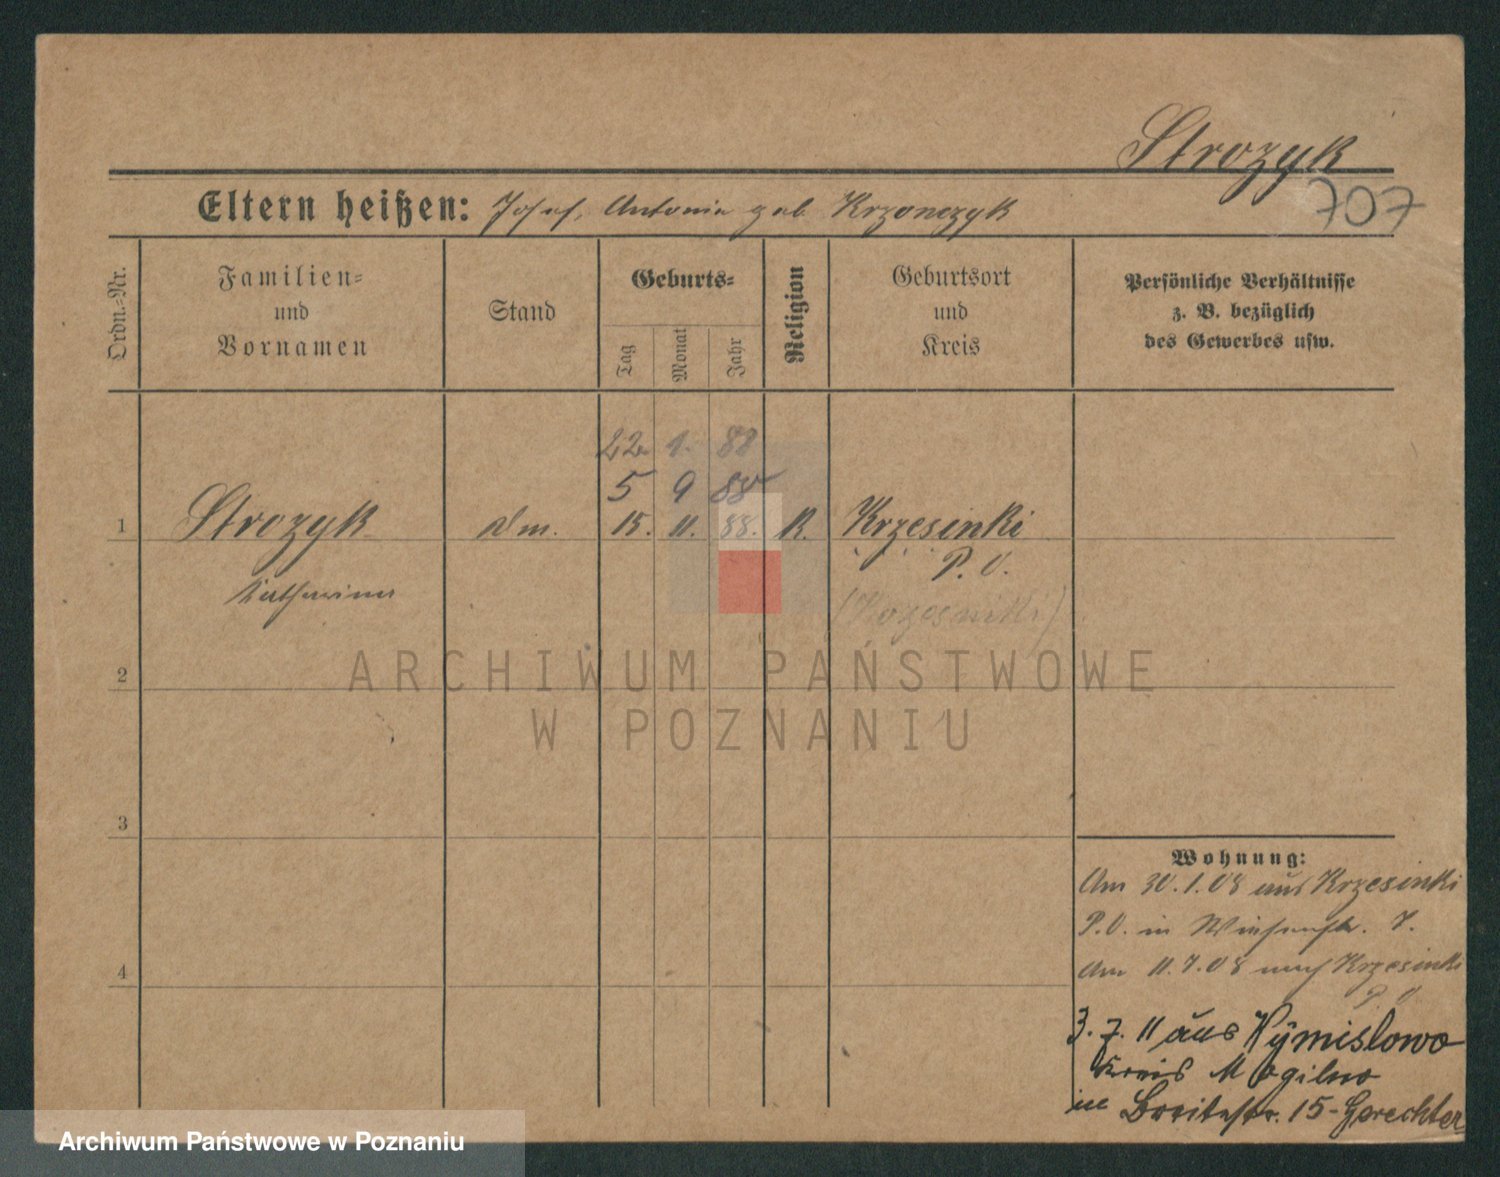 Strozyk
707
Eltern heißen: Josef, Antonia geb Krzonczyk
Ordn.=Nr.
Familien=
und
Vornamen
Stand
Geburts=
Tag
Monat
Jahr
Religion
Geburtsort
und
Kreis
Persönliche Verhältnisse
z. B. bezüglich
des Gewerbes usw.
22. 1. 88
5 9 88
1 Strozyk dm. 15. 11. 88. K. Krzesinki
P. O.
Katharina
2
3
4
Wohnung:
Am 30.1.08 aus Krzesinki
P.O. in 7.
Am 11.7.08 nach Krzesinki
P. O
3. 7. 11 aus Wymislowo
Kreis Mogilno
in Breitestr. 15- Gerechter
ARCHIWUM PAŃSTWOWE
W POZNANIU
Archiwum Państwowe w Poznaniu